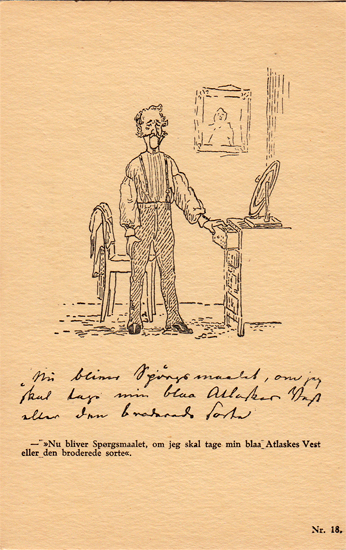 „Nu bliver Spörgsmaalet, om jeg
skal tage min blaa Atlaskes Vest
eller den broderede sorte
— »Nu bliver Spørgsmaalet, om jeg skal tage min blaa Atlaskes Vest
eller den broderede sorte«.
Nr. 18.